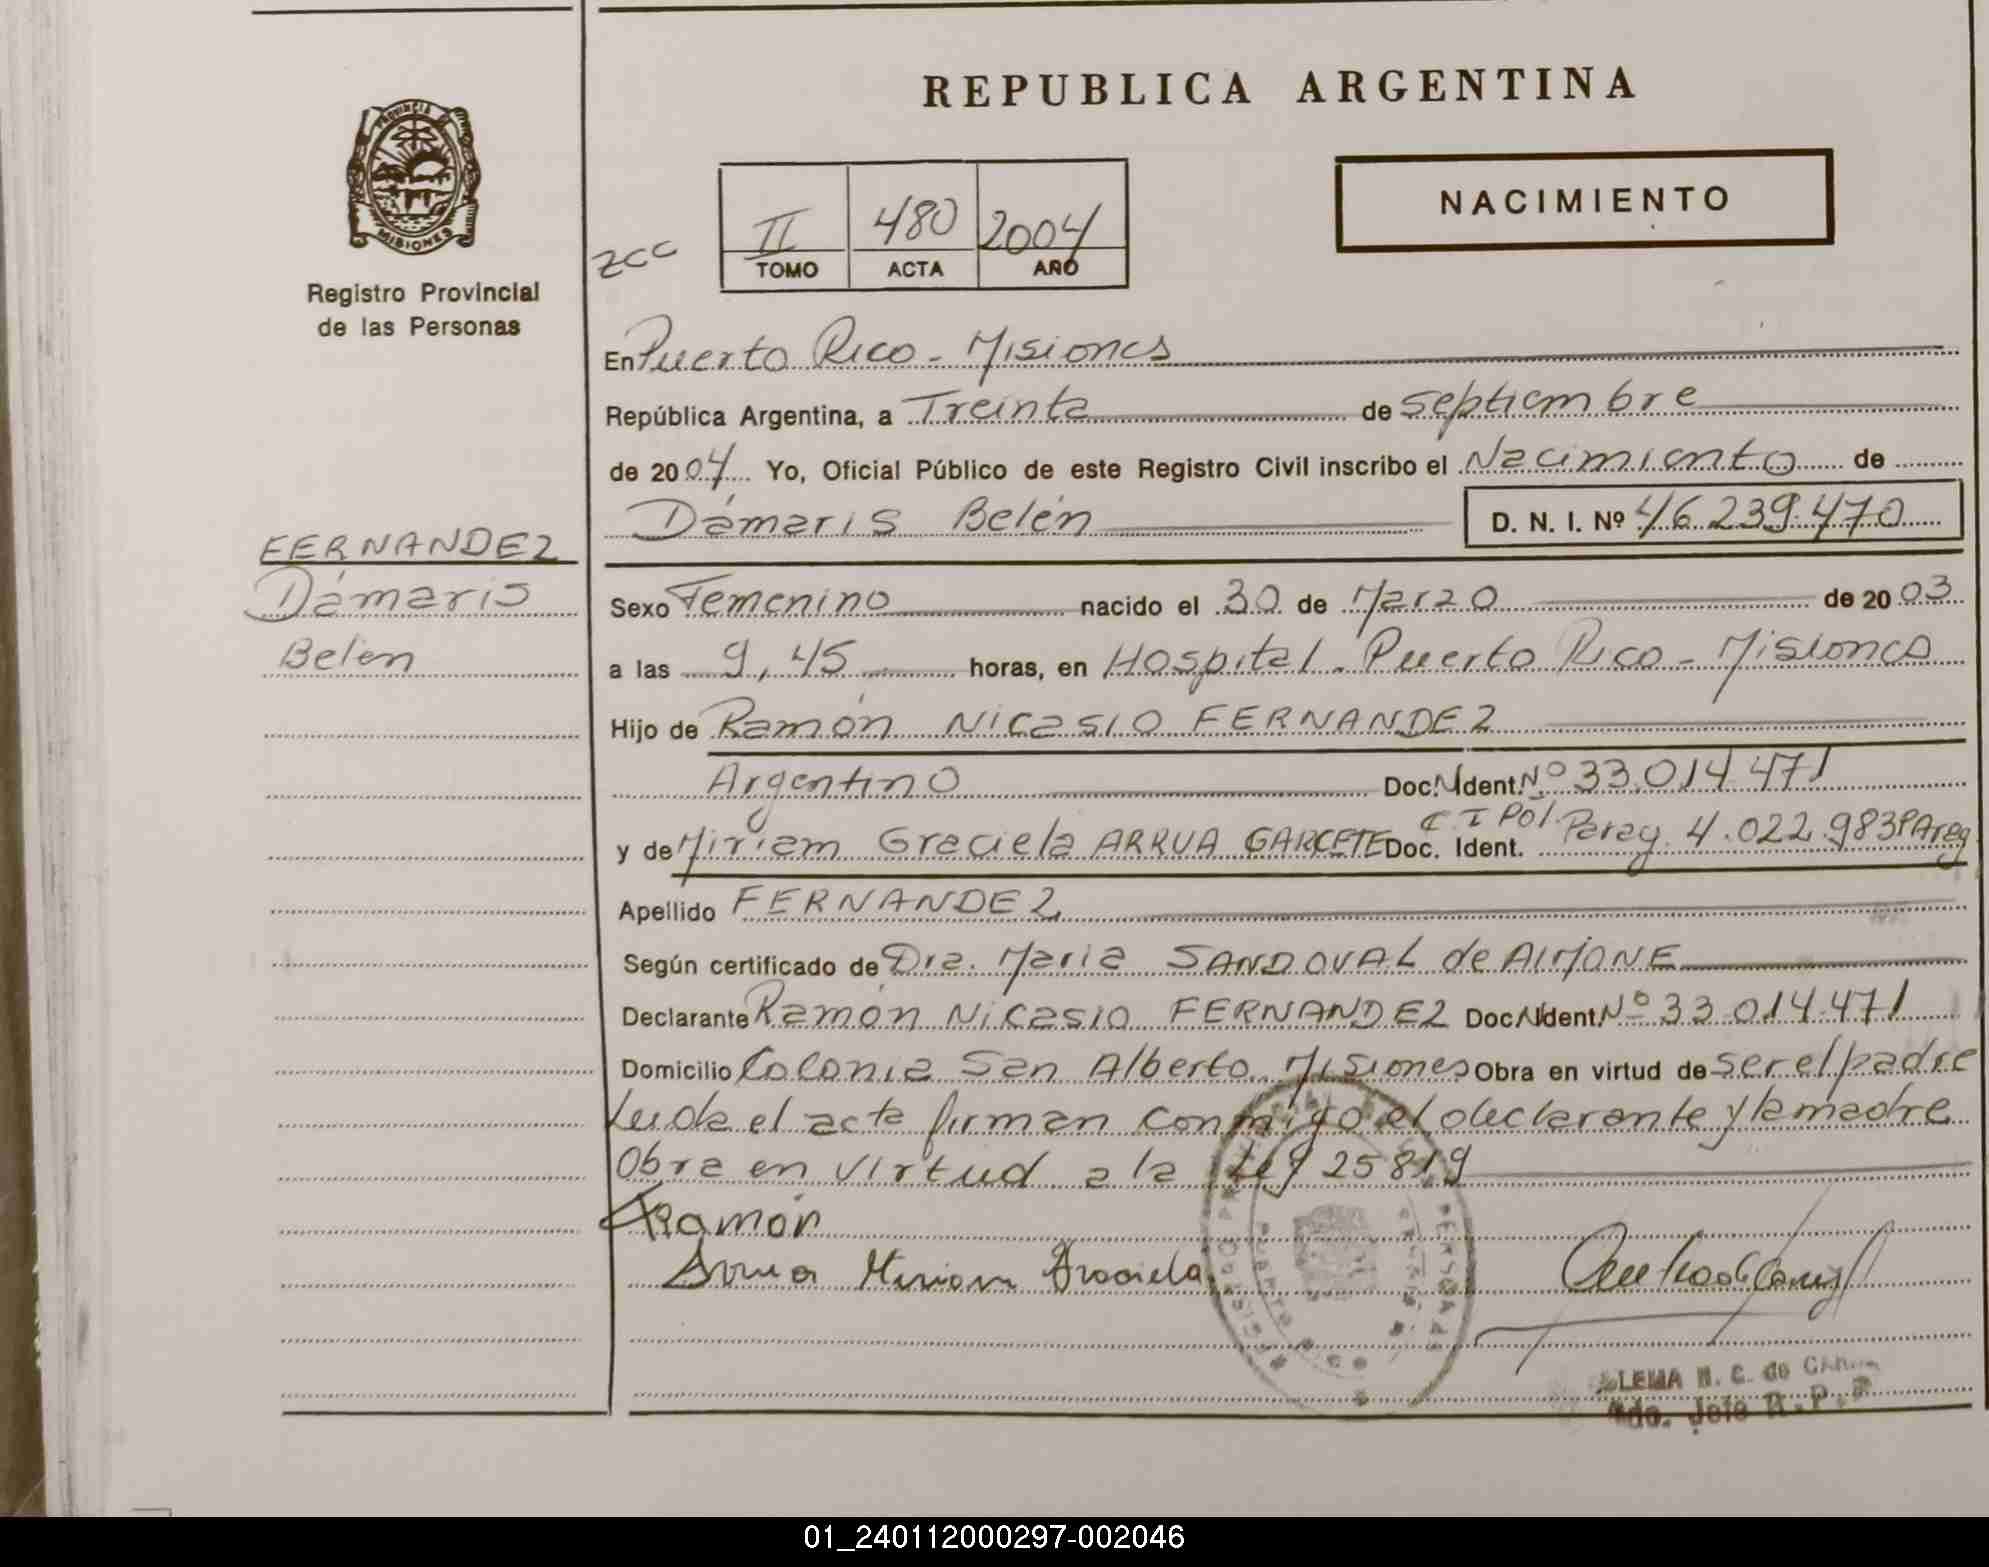 REPUBLICA ARGENTINA
PROVINCIA
MISIONES
Registro Provincial
de las Personas
NACIMIENTO
II 480 2004
TOMO ACTA AÑO
zcc
En Puerto Rico - Misiones
República Argentina, a Treinta de septiembre
de 2004 Yo, Oficial Público de este Registro Civil inscribo el Nacimiento de
Dámaris Belén D. N. I. Nº 46.239.470
FERNANDEZ
Dámaris
Belén
Sexo Femenino nacido el 30 de Marzo de 2003
a las 9,45 horas, en Hospital - Puerto Rico - Misiones
Hijo de Ramón Nicasio FERNANDEZ
Argentino Doc. N. Ident. Nº 33.014.471
y de Miriam Graciela ARRUA GARCETE Doc. Ident. C I Pol. Parag. 4.022.983 PAreg
Apellido FERNANDEZ
Según certificado de Dra. Maria SANDOVAL de AIMONE
Declarante Ramón Nicasio FERNANDEZ Doc. N. Ident. Nº 33.014.471
Domicilio Colonia San Alberto Misiones Obra en virtud de ser el padre
Leida el acta firman conmigo el declarante y la madre
Obra en virtud a la Ley 25819
Ramón
Arrua Miriam Graciela
LEMA M. C. de
Jefe R. P. P
01_240112000297-002046